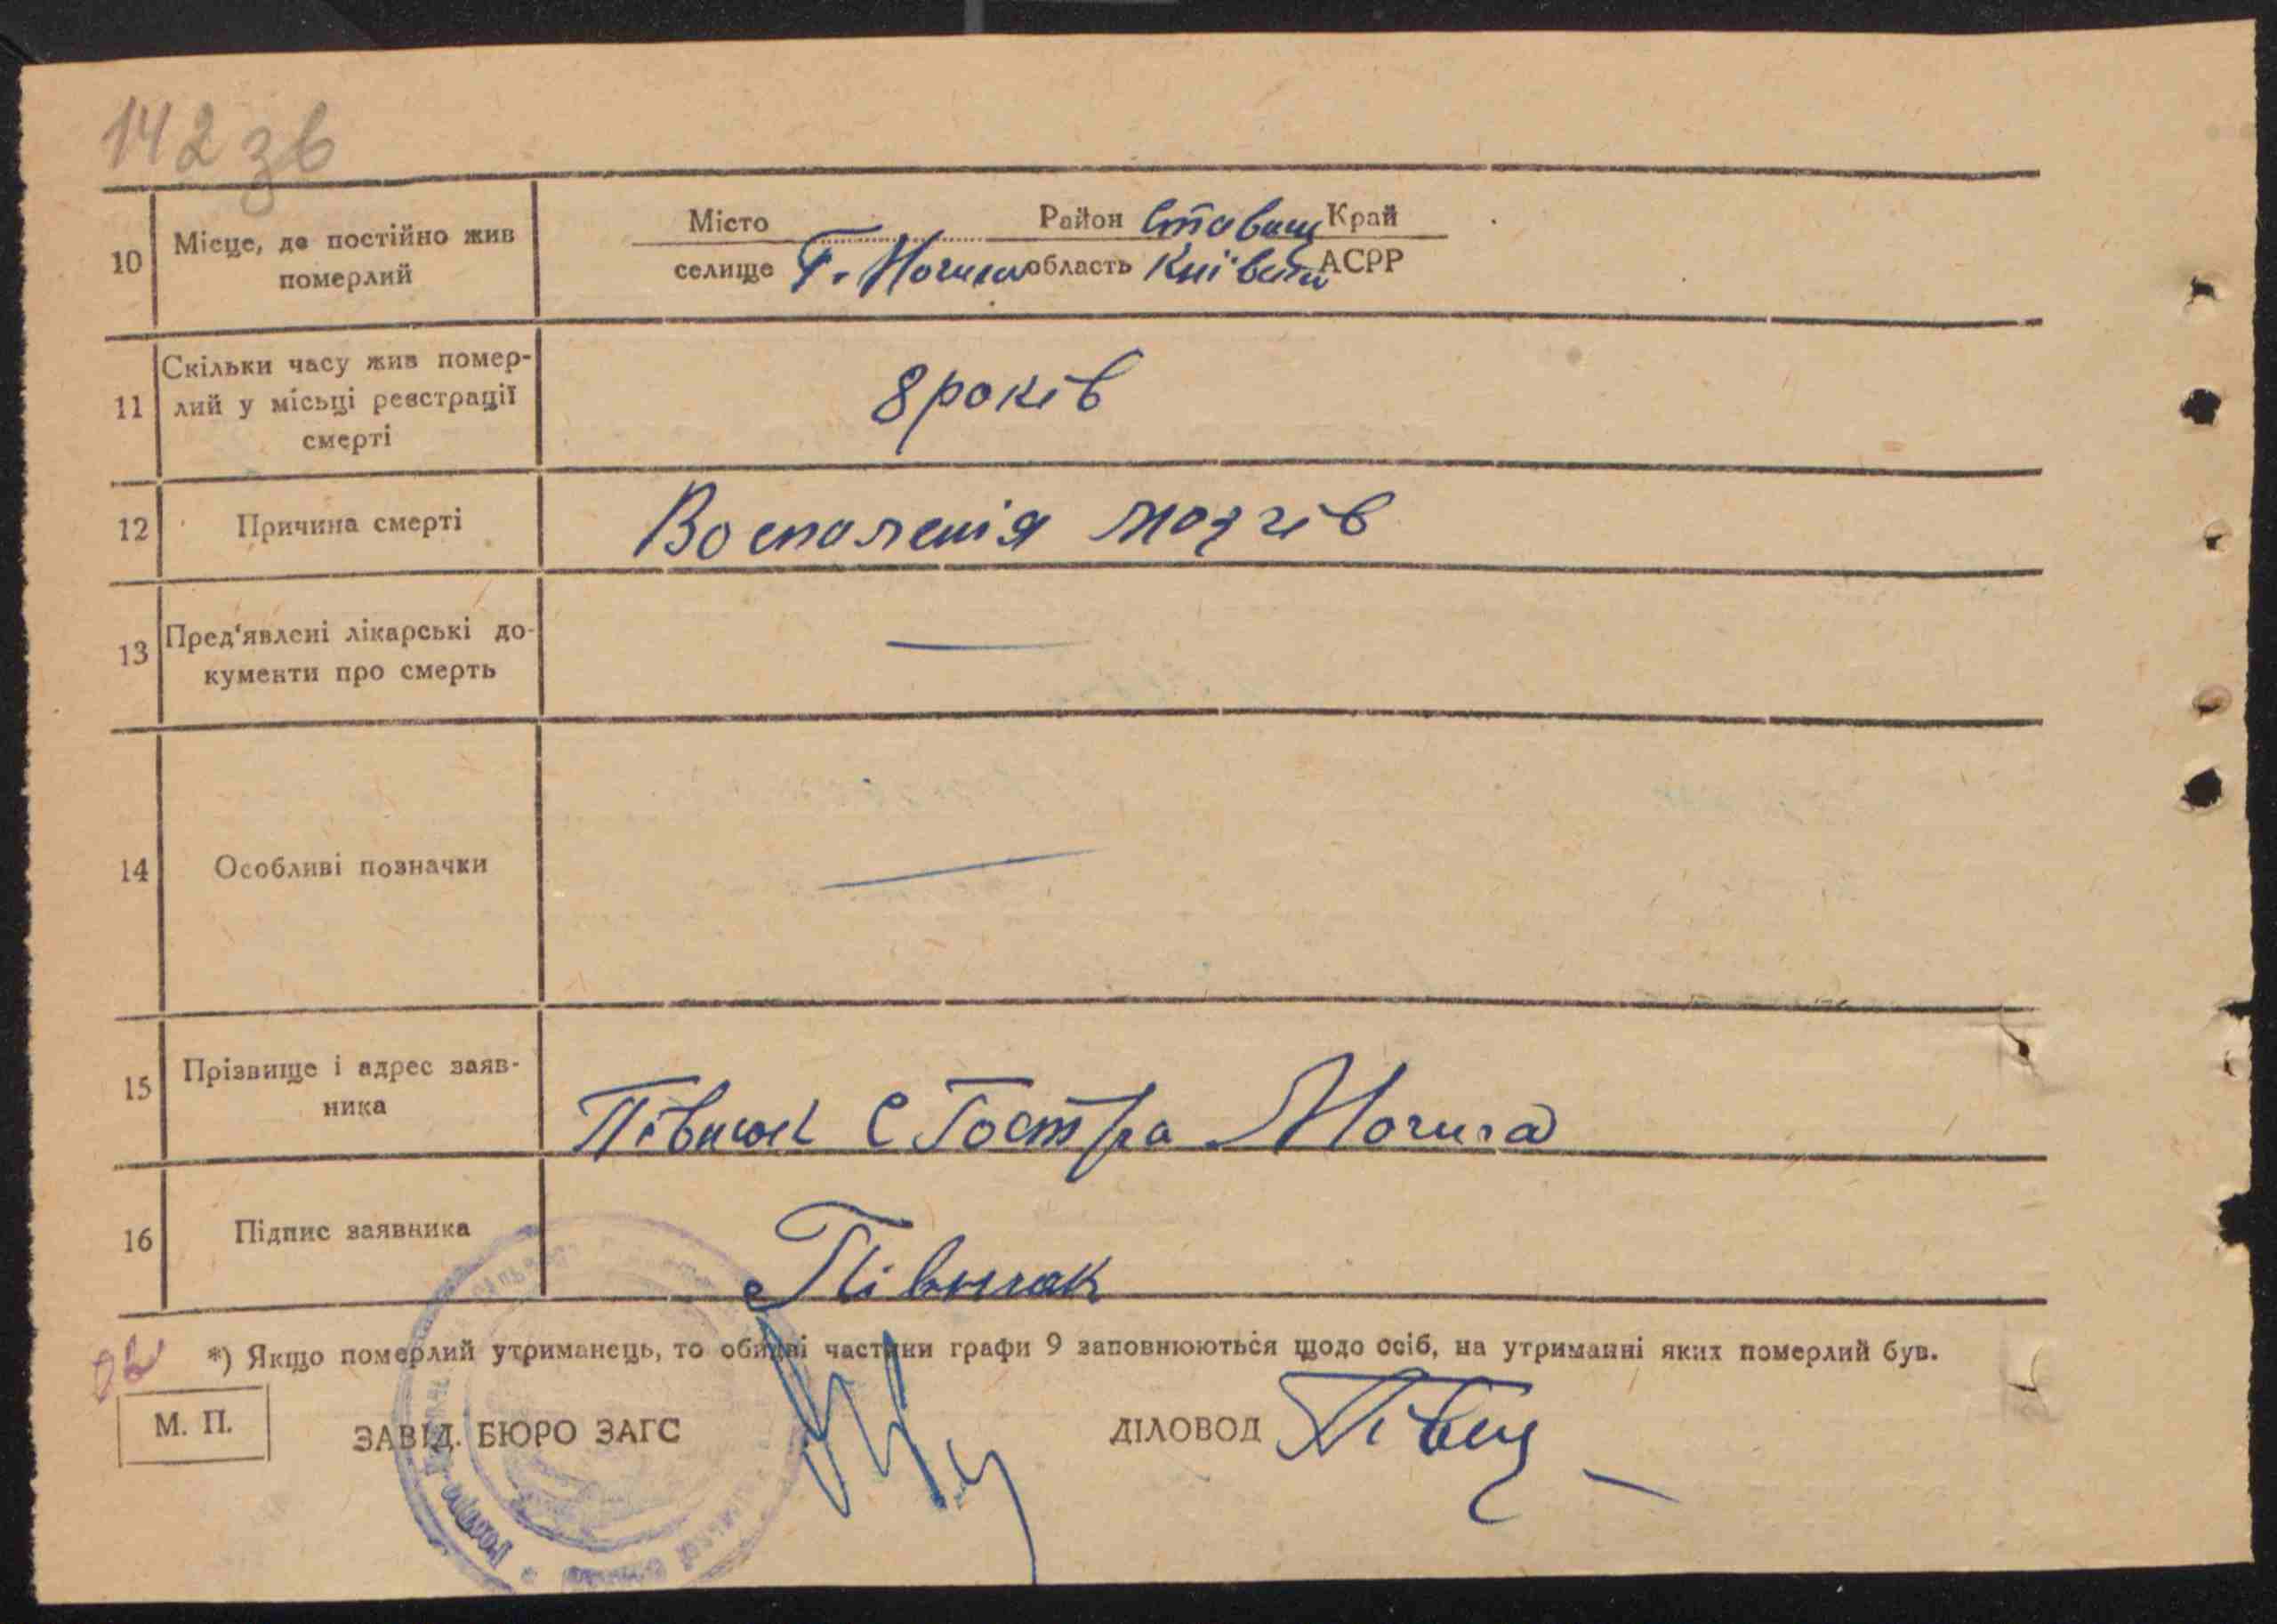 142 зв
10 Місце, де постійно жив померлий
Місто Район Ставищ Край
селище Г. Могила область Київська АСРР
11 Скільки часу жив помер-
лий у місьці реєстрації
смерті
8 років
12 Причина смерті Воспаленія мозгів
13 Пред'явлені лікарські до-
кументи про смерть
14 Особливі позначки
15 Прізвище і адрес заяв-
ника
Півняк С Гостра Могила
16 Підпис заявника Півняк
*) Якщо померлий утриманець, то обидві частини графи 9 заповнюються щодо осіб, на утриманні яких померлий був.
М. П. ЗАВІД. БЮРО ЗАГС ДІЛОВОД